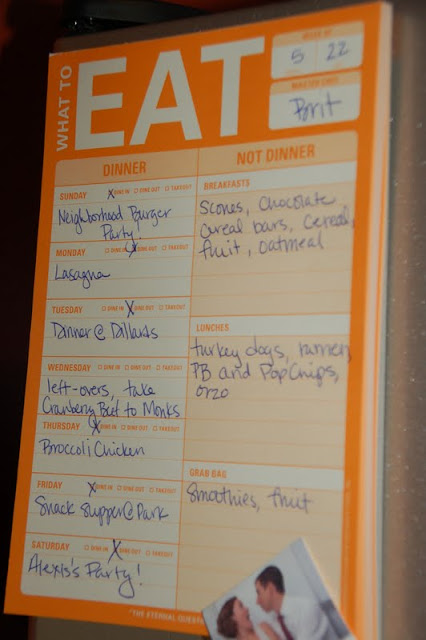 WHAT TO EAT
WEEK OF
5 22
MASTER CHEF
Brit
DINNER
SUNDAY X DINE IN DINE OUT TAKEOUT
Neighborhood Burger
Party!
MONDAY DINE IN DINE OUT TAKEOUT
Lasagna
TUESDAY DINE IN X DINE OUT TAKEOUT
Dinner @ Dillards
WEDNESDAY DINE IN DINE OUT TAKEOUT
left-overs, take
Cranberry Beef to Monks
THURSDAY X DINE IN DINE OUT TAKEOUT
Broccoli Chicken
FRIDAY X DINE IN DINE OUT TAKEOUT
Snack Supper @ Park
SATURDAY DINE IN X DINE OUT TAKEOUT
Alexis's Party!
*THE ETERNAL QUEST
NOT DINNER
BREAKFASTS
Scones, Chocolate
cereal bars, cereal,
fruit, oatmeal
LUNCHES
turkey dogs, ramen,
PB and PopChips,
orzo
GRAB BAG
Smoothies, fruit